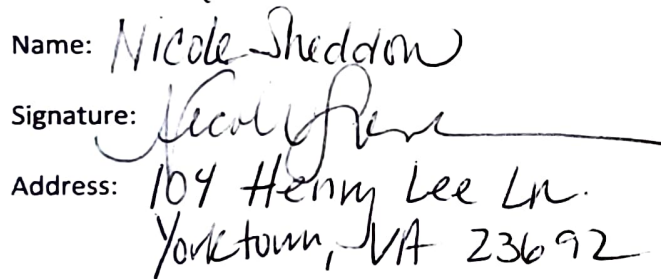 Name: Nicole Sheddon
Signature: Nicole
Address: 104 Henry Lee Ln.
Yorktown, VA 23692